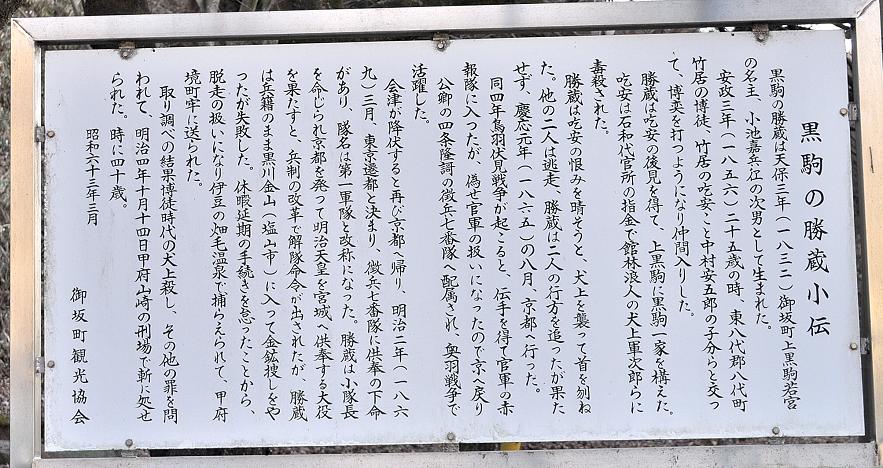 黒駒の勝蔵小伝
黒駒の勝蔵は天保三年(一八三二)御坂町上黒駒若宮
の名主、小池嘉兵江の次男として生まれた。
安政三年(一八五六)二十五歳の時、東八代郡八代町
竹居の博徒、竹居の吃安こと中村安五郎の子分らと交っ
て、博奕を打つようになり仲間入りした。
勝蔵は吃安の後見を得て、上黒駒に黒駒一家を構えた。
吃安は石和代官所の指金で館林浪人の犬上軍次郎らに
毒殺された。
勝蔵は吃安の恨みを晴そうと、犬上を襲って首を刎ね
た。他の二人は逃走、勝蔵は二人の行方を追ったが果た
せず、慶応元年(一八六五)の八月、京都へ行った。
同四年鳥羽伏見戦争が起こると、伝手を得て官軍の赤
報隊に入ったが、偽せ官軍の扱いになったので京へ戻り
公卿の四条隆謌の徴兵七番隊へ配属され、奥羽戦争で
活躍した。
会津が降伏すると再び京都へ帰り、明治二年(一八六
九)三月、東京遷都と決まり、徴兵七番隊に供奉の下命
があり、隊名は第一軍隊と改称になった。勝蔵は小隊長
を命じられ京都を発って明治天皇を宮城へ供奉する大役
を果たすと、兵制の改革で解隊命令が出されたが、勝蔵
は兵籍のまま黒川金山(塩山市)に入って金鉱捜しをや
ったが失敗した。休暇延期の手続きを怠ったことから、
脱走の扱いになり伊豆の畑毛温泉で捕らえられて、甲府
境町牢に送られた。
取り調べの結果博徒時代の犬上殺し、その他の罪を問
われて、明治四年十月十四日甲府山崎の刑場で斬に処せ
られた。時に四十歳。
昭和六十三年三月
御坂町観光協会